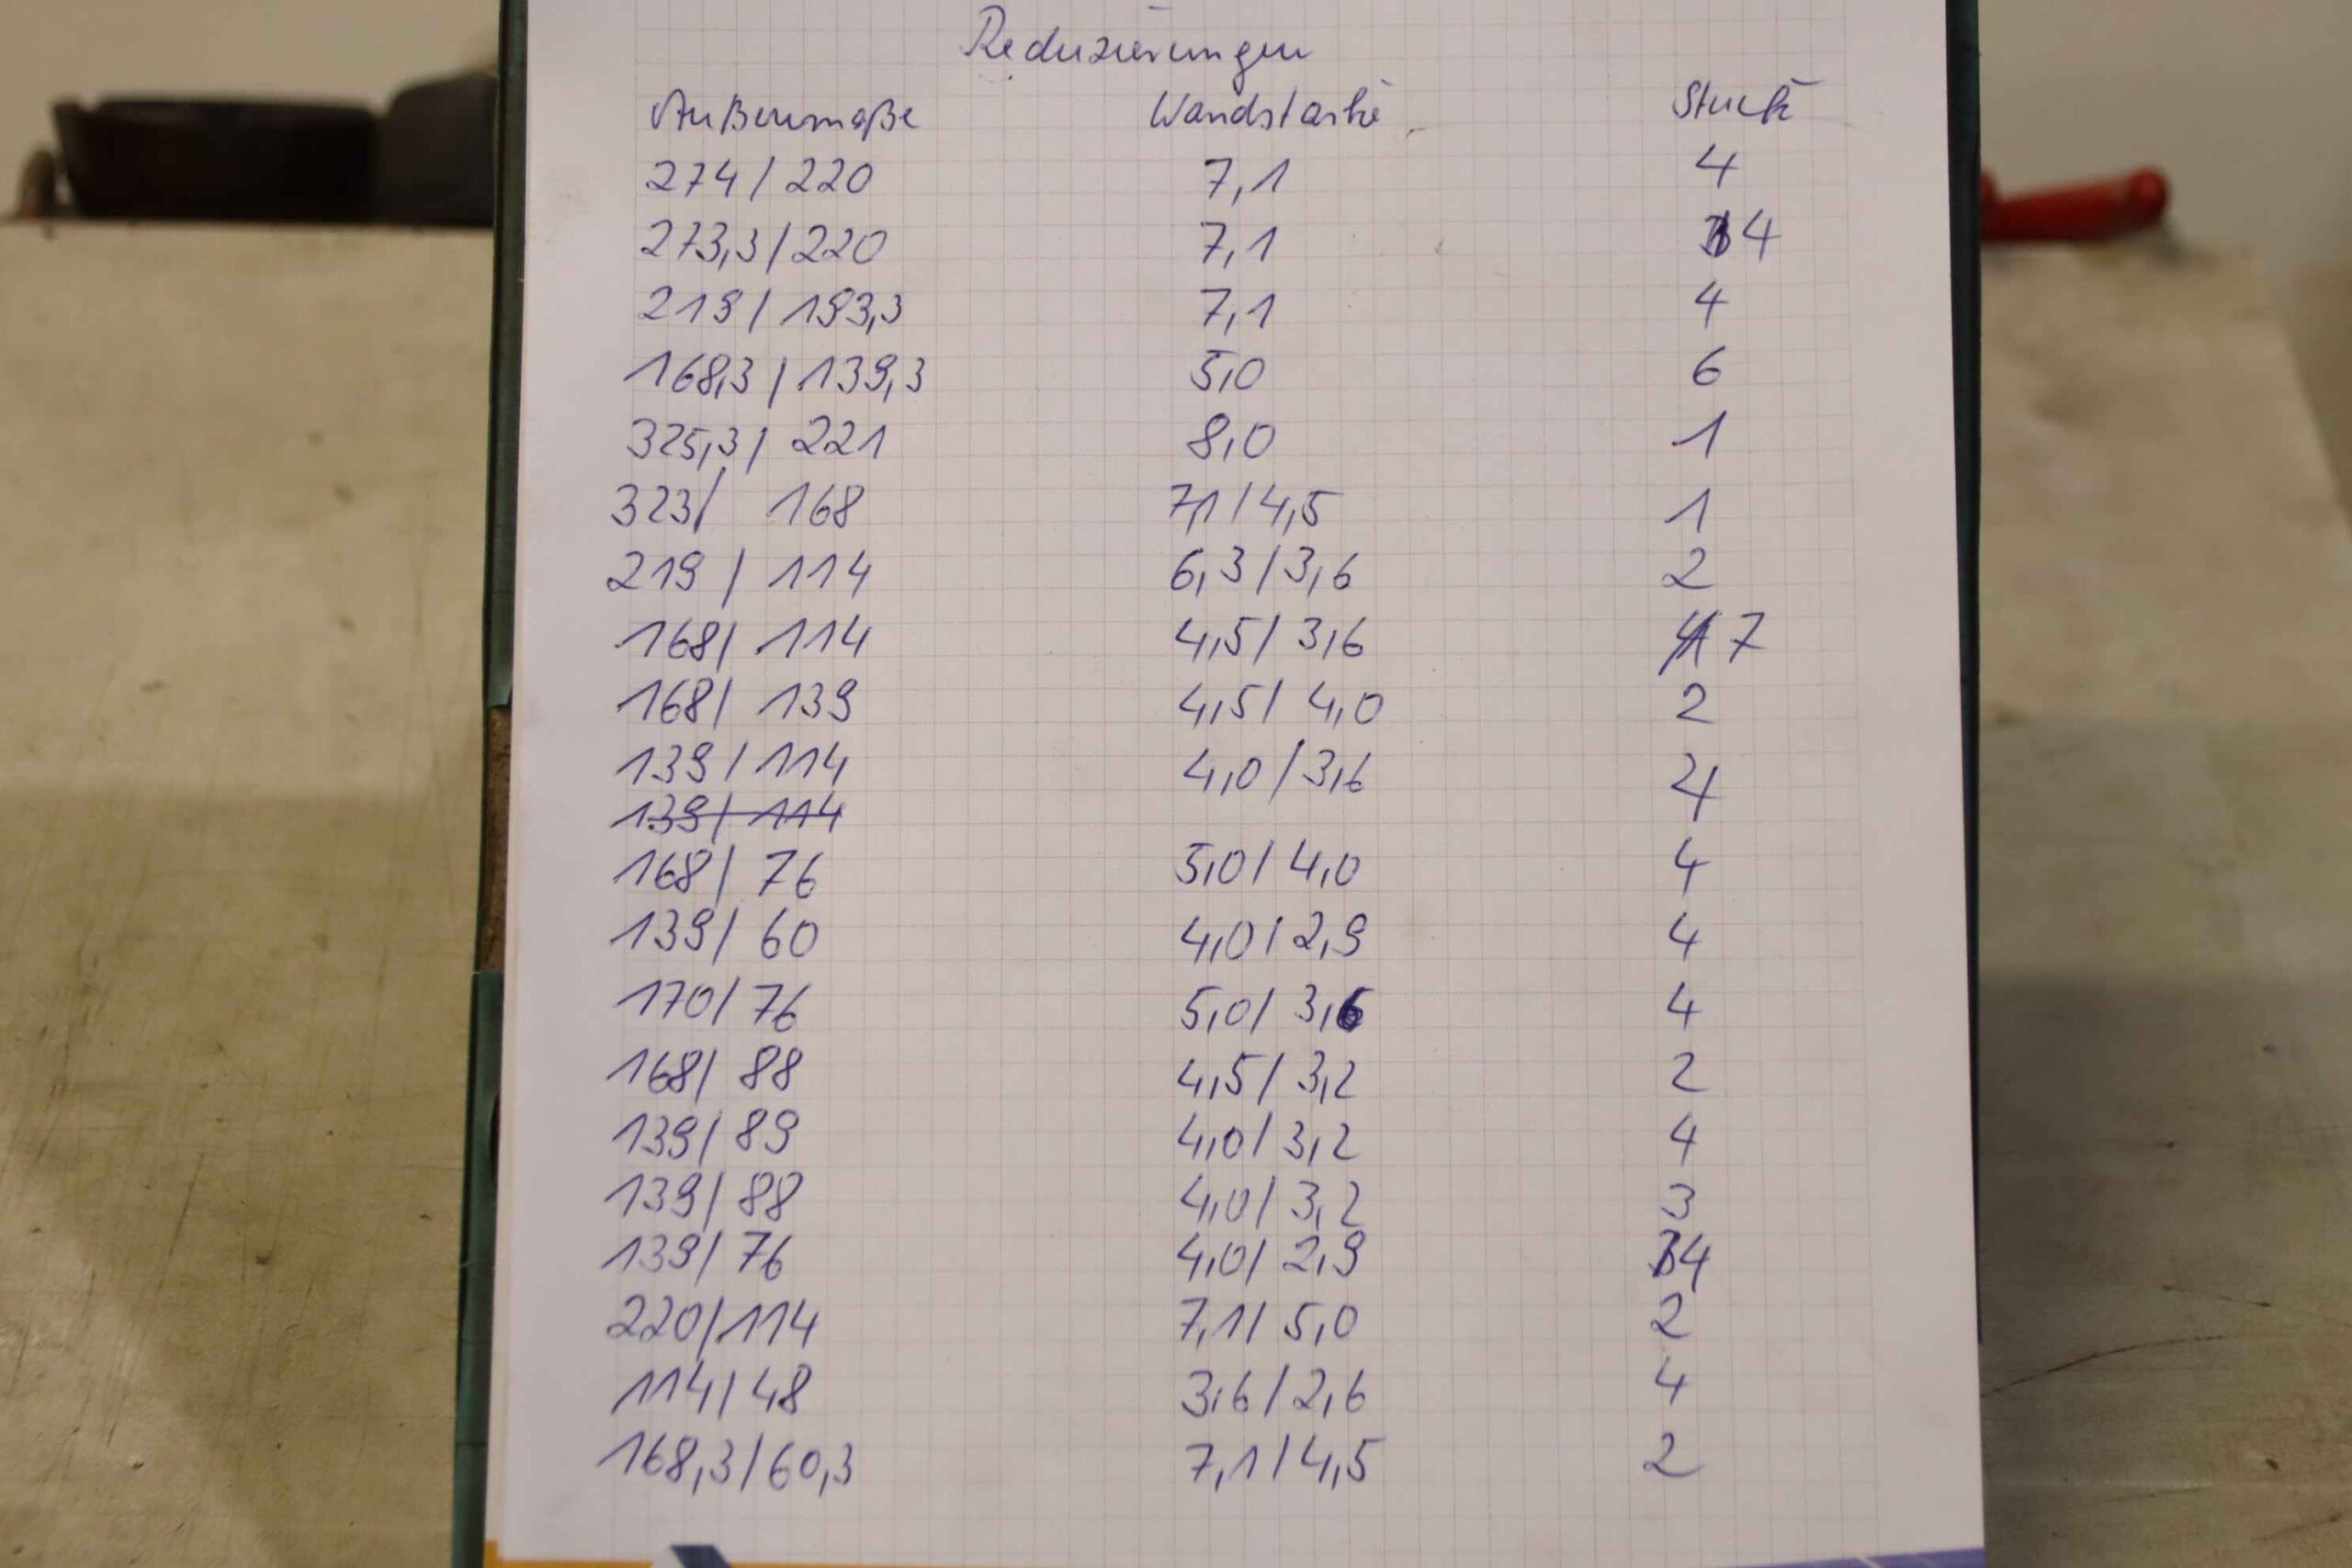 Reduzierungen
Außenmaße Wandstärke Stück
274 / 220 7,1 4
273,3 / 220 7,1 4
219 / 193,3 7,1 4
168,3 / 139,3 5,0 6
325,3 / 221 8,0 1
323 / 168 7,1 / 4,5 1
219 / 114 6,3 / 3,6 2
168 / 114 4,5 / 3,6 7
168 / 139 4,5 / 4,0 2
139 / 114 4,0 / 3,6
139 / 114
168 / 76 5,0 / 4,0 4
139 / 60 4,0 / 2,9 4
170 / 76 5,0 / 3,6 4
168 / 88 4,5 / 3,2 2
139 / 89 4,0 / 3,2 4
139 / 88 4,0 / 3,2 3
139 / 76 4,0 / 2,9 4
220 / 114 7,1 / 5,0 2
114 / 48 3,6 / 2,6 4
168,3 / 60,3 7,1 / 4,5 2